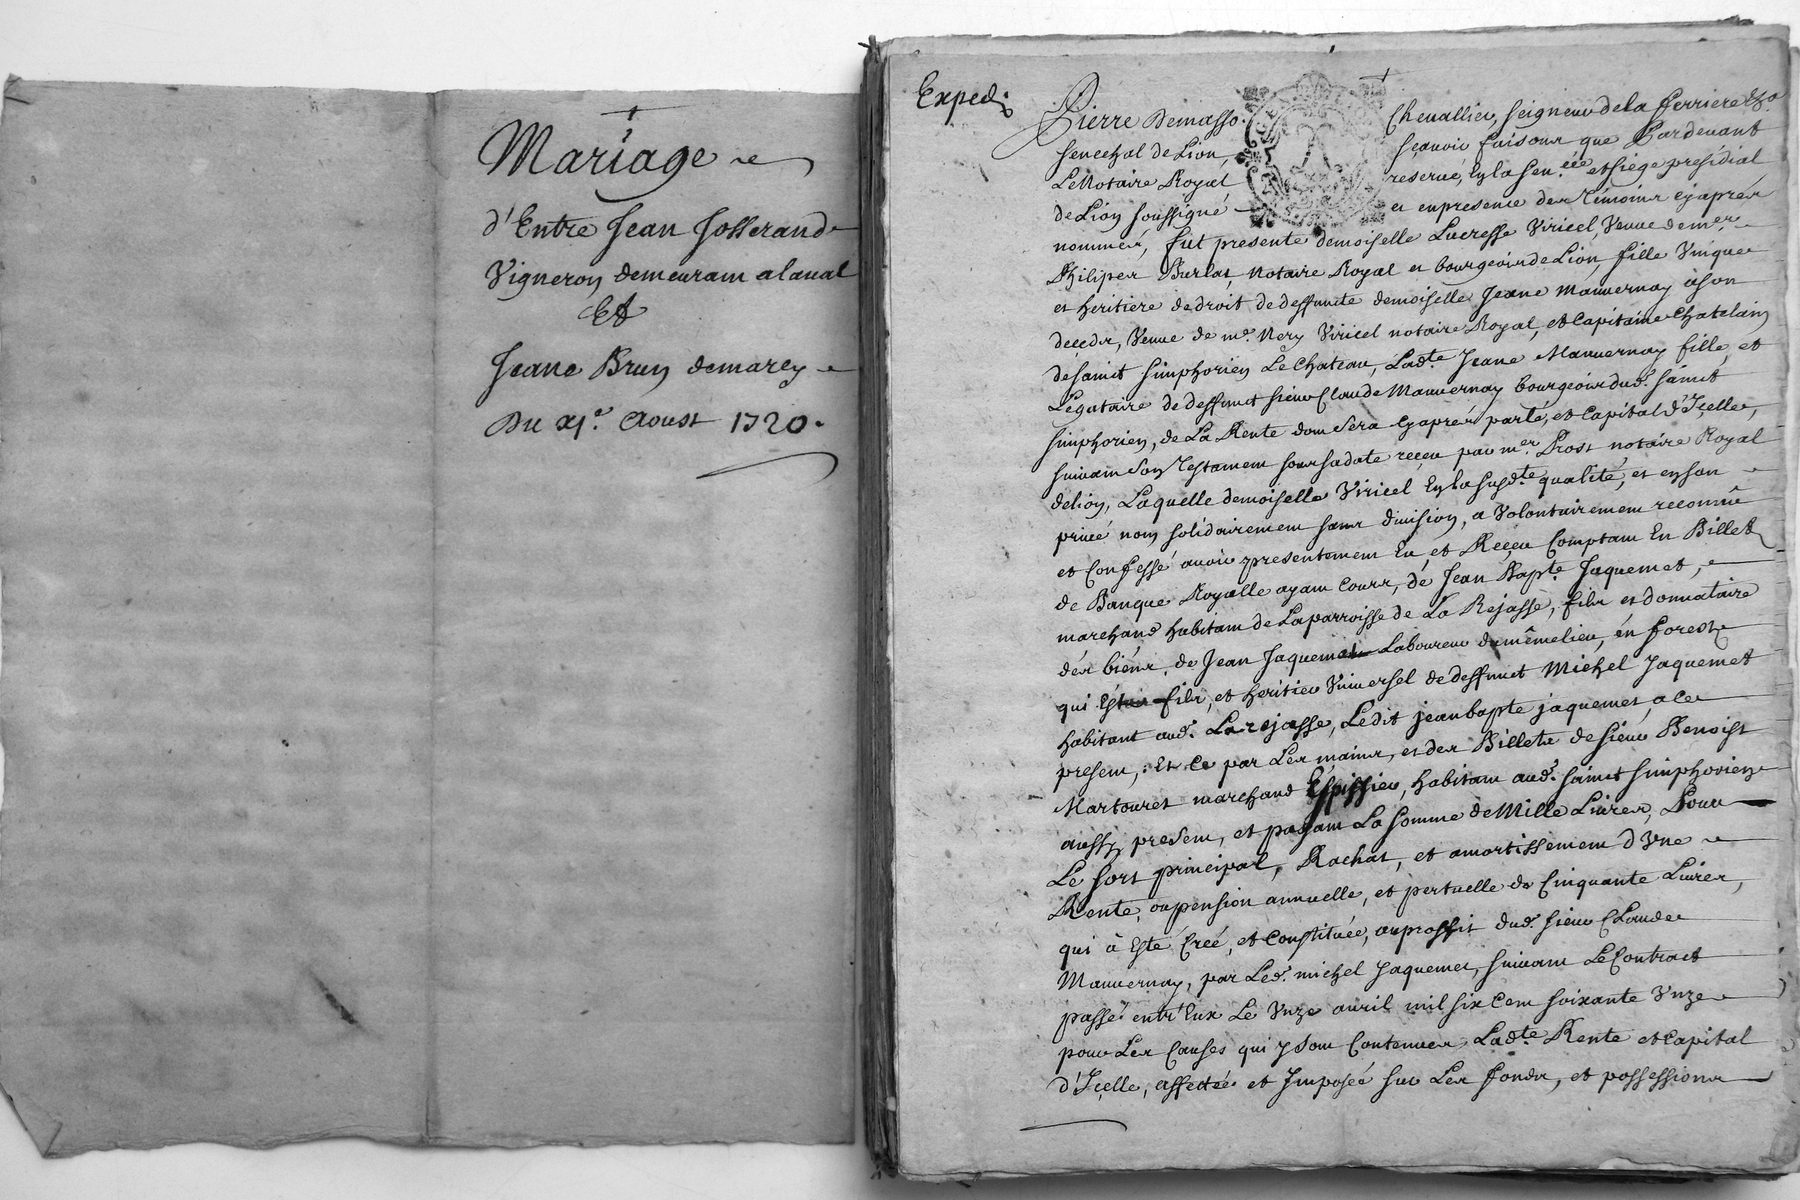 Mariage
d'Entre Jean Josserand
Vigneron demeurant a laual
Et
Jeane Brun demarcy
Du xj.e Aoust 1720.
Exped.
Pierre Demasso Cheuallier, seigneur de la ferriere &a
senechal de Lion, sçauoir faisons que Pardeuant
Le Notaire Royal reserué, En la sen.cée et siége présidial
de Lion soussigné et en presence des Témoins cy aprés
nommés, fut presente demoiselle Lucresse Viricel, Veuue de m.re
Philiper Burlat, Notaire Royal et bourgeois de Lion, fille Vnique
et heritiere de droit de deffuncte demoiselle Jeane Mauuernay à son
decedz, Veuue de m.e Nery Viricel notaire Royal, et Capitaine Chatelain
de saint simphorien Le Chateau, Lad.te Jeane Mauuernay fille, et
Légataire de deffunct sieur Claude Mauuernay bourgeois dud. sainct
simphorien, de La Rente dont sera cy aprés parlé, et Capital d'Icelle,
suiuant son Testament sous sa date reçeu par m.er Prost notaire Royal
de lion, Laquelle demoiselle Viricel En la susd.te qualité, et en son
priué nom solidairement sans diuision, a Volontairement reconnû
et Confessé auoir presentement Eu et Reçeu Comptant En Billets
de Banque Royalle ayant Cours, de Jean Bap.te Jaquemet,
marchand habitant de La parroisse de La Rejasse, fils et donnataire
des biens de Jean Jaquemet Laboureur du même lieu, en forest
qui Estoit fils, et heritier Vniuersel de deffunct Michel Jaquemet
habitant aud. La rejasse, Ledit jean bapte jaquemet, a ce
present, Et Ce par Les mains, et des Billets de sieur Benoist
Martouret marchand Espissier, habitant aud. sainct simphorien
aussy present, et payant La somme de Mille Liures, Pour
Le sort principal, Rachat, et amortissement d'Vne
Rente, ou pension annuelle, et pertuelle de Cinquante Liures,
qui à Esté Creé, et Constituée, au proffit dud. sieur Claude
Mauuernay, par Led. michel Jaquemet, suiuant Le Contract
passé entr'Eux Le Vnze auril mil six Cent soixante Vnze
pour Les Causes qui y sont Contenues, Lad.te Rente et Capital
d'Içelle, affectée et Jmposée sur Les fonds, et possessions